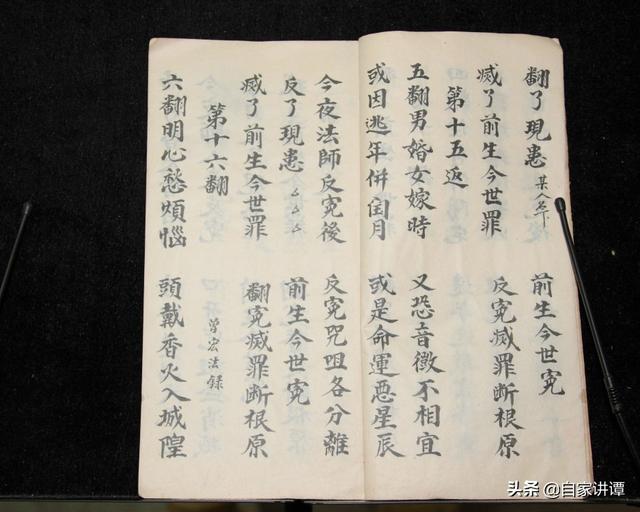 翻了現患 某人名下 前生今世寃
減了前生今世罪 反寃滅罪断根原
第十五返
五翻男婚女嫁時 又恐音徵不相宜
或因逃年併閏月 或是命運恶星辰
今夜法師反寃後 反寃咒咀各分離
反了現患 厶厶厶 前生今世寃
滅了前生今世罪 翻寃滅罪断根原
第十六翻
曾宏法録
六翻明心愁煩惱 頭戴香火入城隍
头条 @自家讲谭